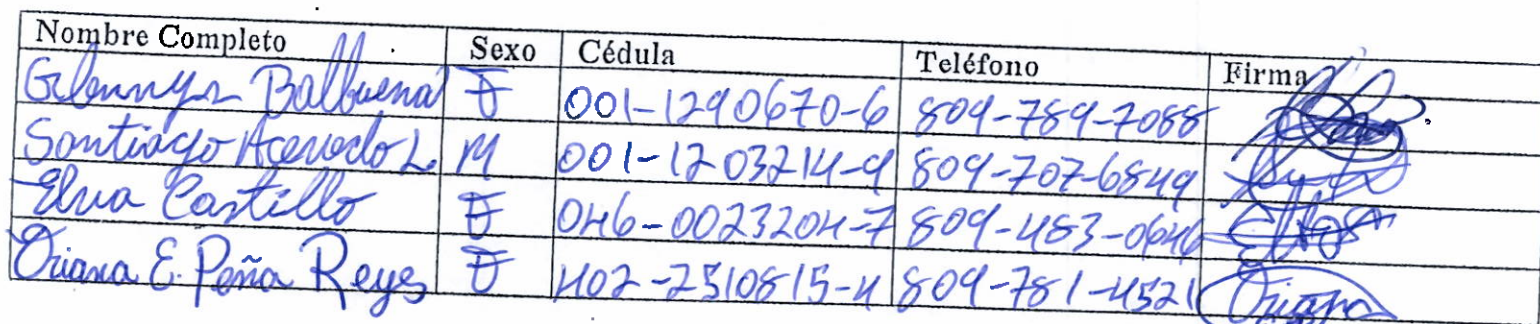 Nombre Completo Sexo Cédula Teléfono Firma
Glennys Balbuena F 001-1290670-6 809-789-7088
Santiago Acevedo L. M 001-1203214-9 809-707-6849
Elva Castillo F 046-0023204-7 809-483-0646
Oriana E. Peña Reyes F 402-2510815-4 809-781-4521 Oriana